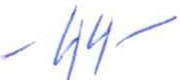 - 44 -